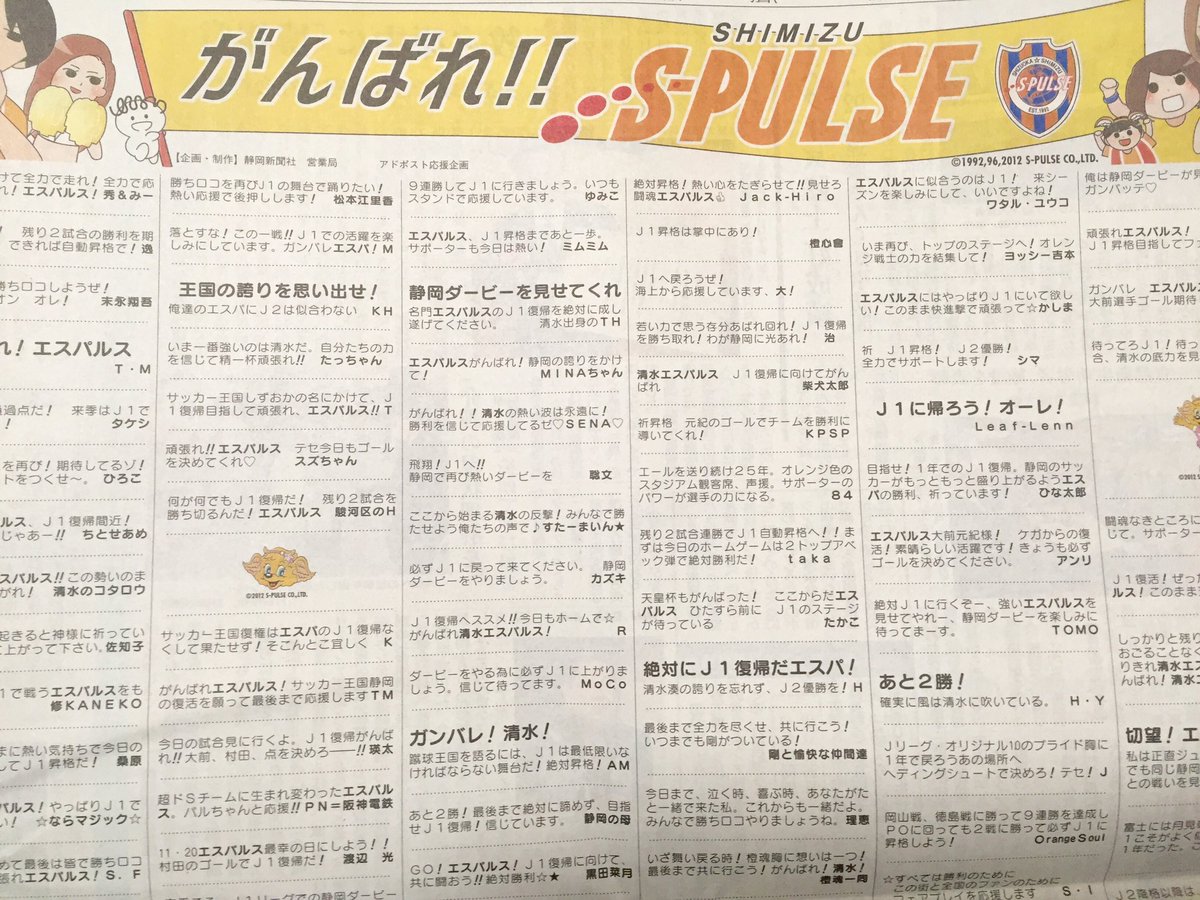 がんばれ!!
SHIMIZU
S-PULSE
SHIZUOKA☆SHIMIZU
S-PULSE
EST.1991
【企画・制作】静岡新聞社 営業局 アドポスト応援企画
©1992,96,2012 S-PULSE CO.,LTD.
けて全力で走れ!全力で応
れ!エスパルス!秀&みー
! 残り2試合の勝利を期
できれば自動昇格で!逸
勝ちロコしようぜ!
オン オレ! 末永翔吾
れ!エスパルス
T・M
過点だ! 来季はJ1で
! タケシ
を再び!期待してるゾ!
トをつくせ〜。ひろこ
ルス、J1復帰間近!
じゃあー!! ちとせあめ
エスパルス!!この勢いのま
がれ! 清水のコタロウ
起きると神様に祈ってい
に上がって下さい。佐知子
1で戦うエスパルスをも
修KANEKO
まに熱い気持ちで今日の
してJ1昇格だ! 桑原
パルス!やっぱりJ1で
い! ☆ならマジック☆
めて最後は皆で勝ちロコ
張れエスパルス!S.F
勝ちロコを再びJ1の舞台で踊りたい!
熱い応援で後押しします! 松本江里香
落とすな!この一戦!!J1での活躍を楽
しみにしています。ガンバレエスパ!M
王国の誇りを思い出せ!
俺達のエスパにJ2は似合わない KH
いま一番強いのは清水だ。自分たちの力
を信じて精一杯頑張れ!! たっちゃん
サッカー王国しずおかの名にかけて、J
1復帰目指して頑張れ、エスパルス!!T
頑張れ!!エスパルス テセ今日もゴール
を決めてくれ♡ スズちゃん
何が何でもJ1復帰だ! 残り2試合を
勝ち切るんだ!エスパルス 駿河区のH
©2012 S-PULSE CO.,LTD.
サッカー王国復権はエスパのJ1復帰な
くして果たせず!そこんとこ宜しく K
がんばれエスパルス!サッカー王国静岡
の復活を願って最後まで応援しますTM
今日の試合見に行くよ。J1復帰がんば
れ!!大前、村田、点を決めろ――!!瑛太
超ドSチームに生まれ変わったエスパル
ス。パルちゃんと応援!!PN=阪神電鉄
11・20エスパルス最幸の日にしよう!!
村田のゴールでJ1復帰だ! 渡辺 光
9連勝してJ1に行きましょう。いつも
スタンドで応援しています。 ゆみこ
エスパルス、J1昇格まであと一歩。
サポーターも今日は熱い! ミムミム
静岡ダービーを見せてくれ
名門エスパルスのJ1復帰を絶対に成し
遂げてください。 清水出身のTH
エスパルスがんばれ!静岡の誇りをかけ
て! MINAちゃん
がんばれ!!清水の熱い波は永遠に!
勝利を信じて応援してるゼ♡SENA♡
飛翔!J1へ!!
静岡で再び熱いダービーを 聡文
ここから始まる清水の反撃!みんなで勝
たせよう俺たちの声で♪すたーまいん★
必ずJ1に戻って来てください。静岡
ダービーをやりましょう。 カズキ
J1復帰へススメ!!今日もホームで☆
がんばれ清水エスパルス! R
ダービーをやる為に必ずJ1に上がりま
しょう。信じて待ってます。 MoCo
ガンバレ!清水!
蹴球王国を語るには、J1は最低限いな
ければならない舞台だ!絶対昇格!AM
あと2勝!最後まで絶対に諦めず、目指
せJ1復帰!信じています。静岡の母
GO!エスパルス!J1復帰に向けて、
共に闘おう!!絶対勝利☆★ 黒田菜月
絶対昇格!熱い心をたぎらせて!!見せろ
闘魂エスパルス Jack-Hiro
J1昇格は掌中にあり!
橙心會
J1へ戻ろうぜ!
海上から応援しています、大!
若い力で思う存分あばれ回れ!J1復帰
を勝ち取れ!わが静岡に光あれ! 治
清水エスパルス J1復帰に向けてがん
ばれ 柴犬太郎
祈昇格 元紀のゴールでチームを勝利に
導いてくれ! KPSP
エールを送り続け25年。オレンジ色の
スタジアム観客席、声援。サポーターの
パワーが選手の力になる。 84
残り2試合連勝でJ1自動昇格へ!!ま
ずは今日のホームゲームは2トップアベ
ック弾で絶対勝利だ! taka
天皇杯もがんばった! ここからだエス
パルス ひたすら前に J1のステージ
が待っている たかこ
絶対にJ1復帰だエスパ!
清水湊の誇りを忘れず、J2優勝を!H
最後まで全力を尽くせ、共に行こう!
いつまでも剛がついている!
剛と愉快な仲間達
今日まで、泣く時、喜ぶ時、あなたがた
と一緒で来た私。これからも一緒だよ。
みんなで勝ちロコやりましょうね。理恵
いざ舞い戻る時!橙魂胸に想いは一つ!
最後まで共に行こう!がんばれ!清水!
橙魂一同
エスパルスに似合うのはJ1! 来シー
ズンを楽しみにして、いいですよね!
ワタル・ユウコ
いま再び、トップのステージへ!オレン
ジ戦士の力を結集して! ヨッシー吉本
エスパルスにはやっぱりJ1にいて欲し
い!このまま快進撃で頑張って☆かしま
祈 J1昇格! J2優勝!
全力でサポートします! シマ
J1に帰ろう!オーレ!
Leaf-Lenn
目指せ!1年でのJ1復帰。静岡のサッ
カーがもっともっと盛り上がるようエス
パの勝利、祈っています! ひな太郎
エスパルス大前元紀様! ケガからの復
活!素晴らしい活躍です!きょうも必ず
ゴールを決めてください。 アンリ
絶対J1に行くぞー、強いエスパルスを
見せてやれー、静岡ダービーを楽しみに
待ってまーす。 TOMO
あと2勝!
確実に風は清水に吹いている。 H・Y
Jリーグ・オリジナル10のプライド胸に
1年で戻ろうあの場所へ
ヘディングシュートで決めろ!テセ!J
岡山戦、徳島戦に勝って9連勝を達成し
POに回っても2戦に勝って必ずJ1に
昇格しよう! Orange Soul
☆すべては勝利のために
この街と全国のファンのために
フェアプレイを応援します S・I
俺は静岡ダービーが見
ガンバッテ♡
頑張れエスパルス!
J1昇格目指してファ
ガンバレ エスパル
大前選手ゴール期待
待ってろJ1!待っ
合、清水の底力を見
闘魂なきところに
じて。サポーター
J1復活!ぜった
ルス!このまま
しっかりと残り
おごることなく
りきれ清水エス
ばれ!清水エス
切望!エ
私は正直ジュ
でも同じ静岡
との戦いを見
富士には月見
1こそがよく
1年だった。こ
J2降格以降は